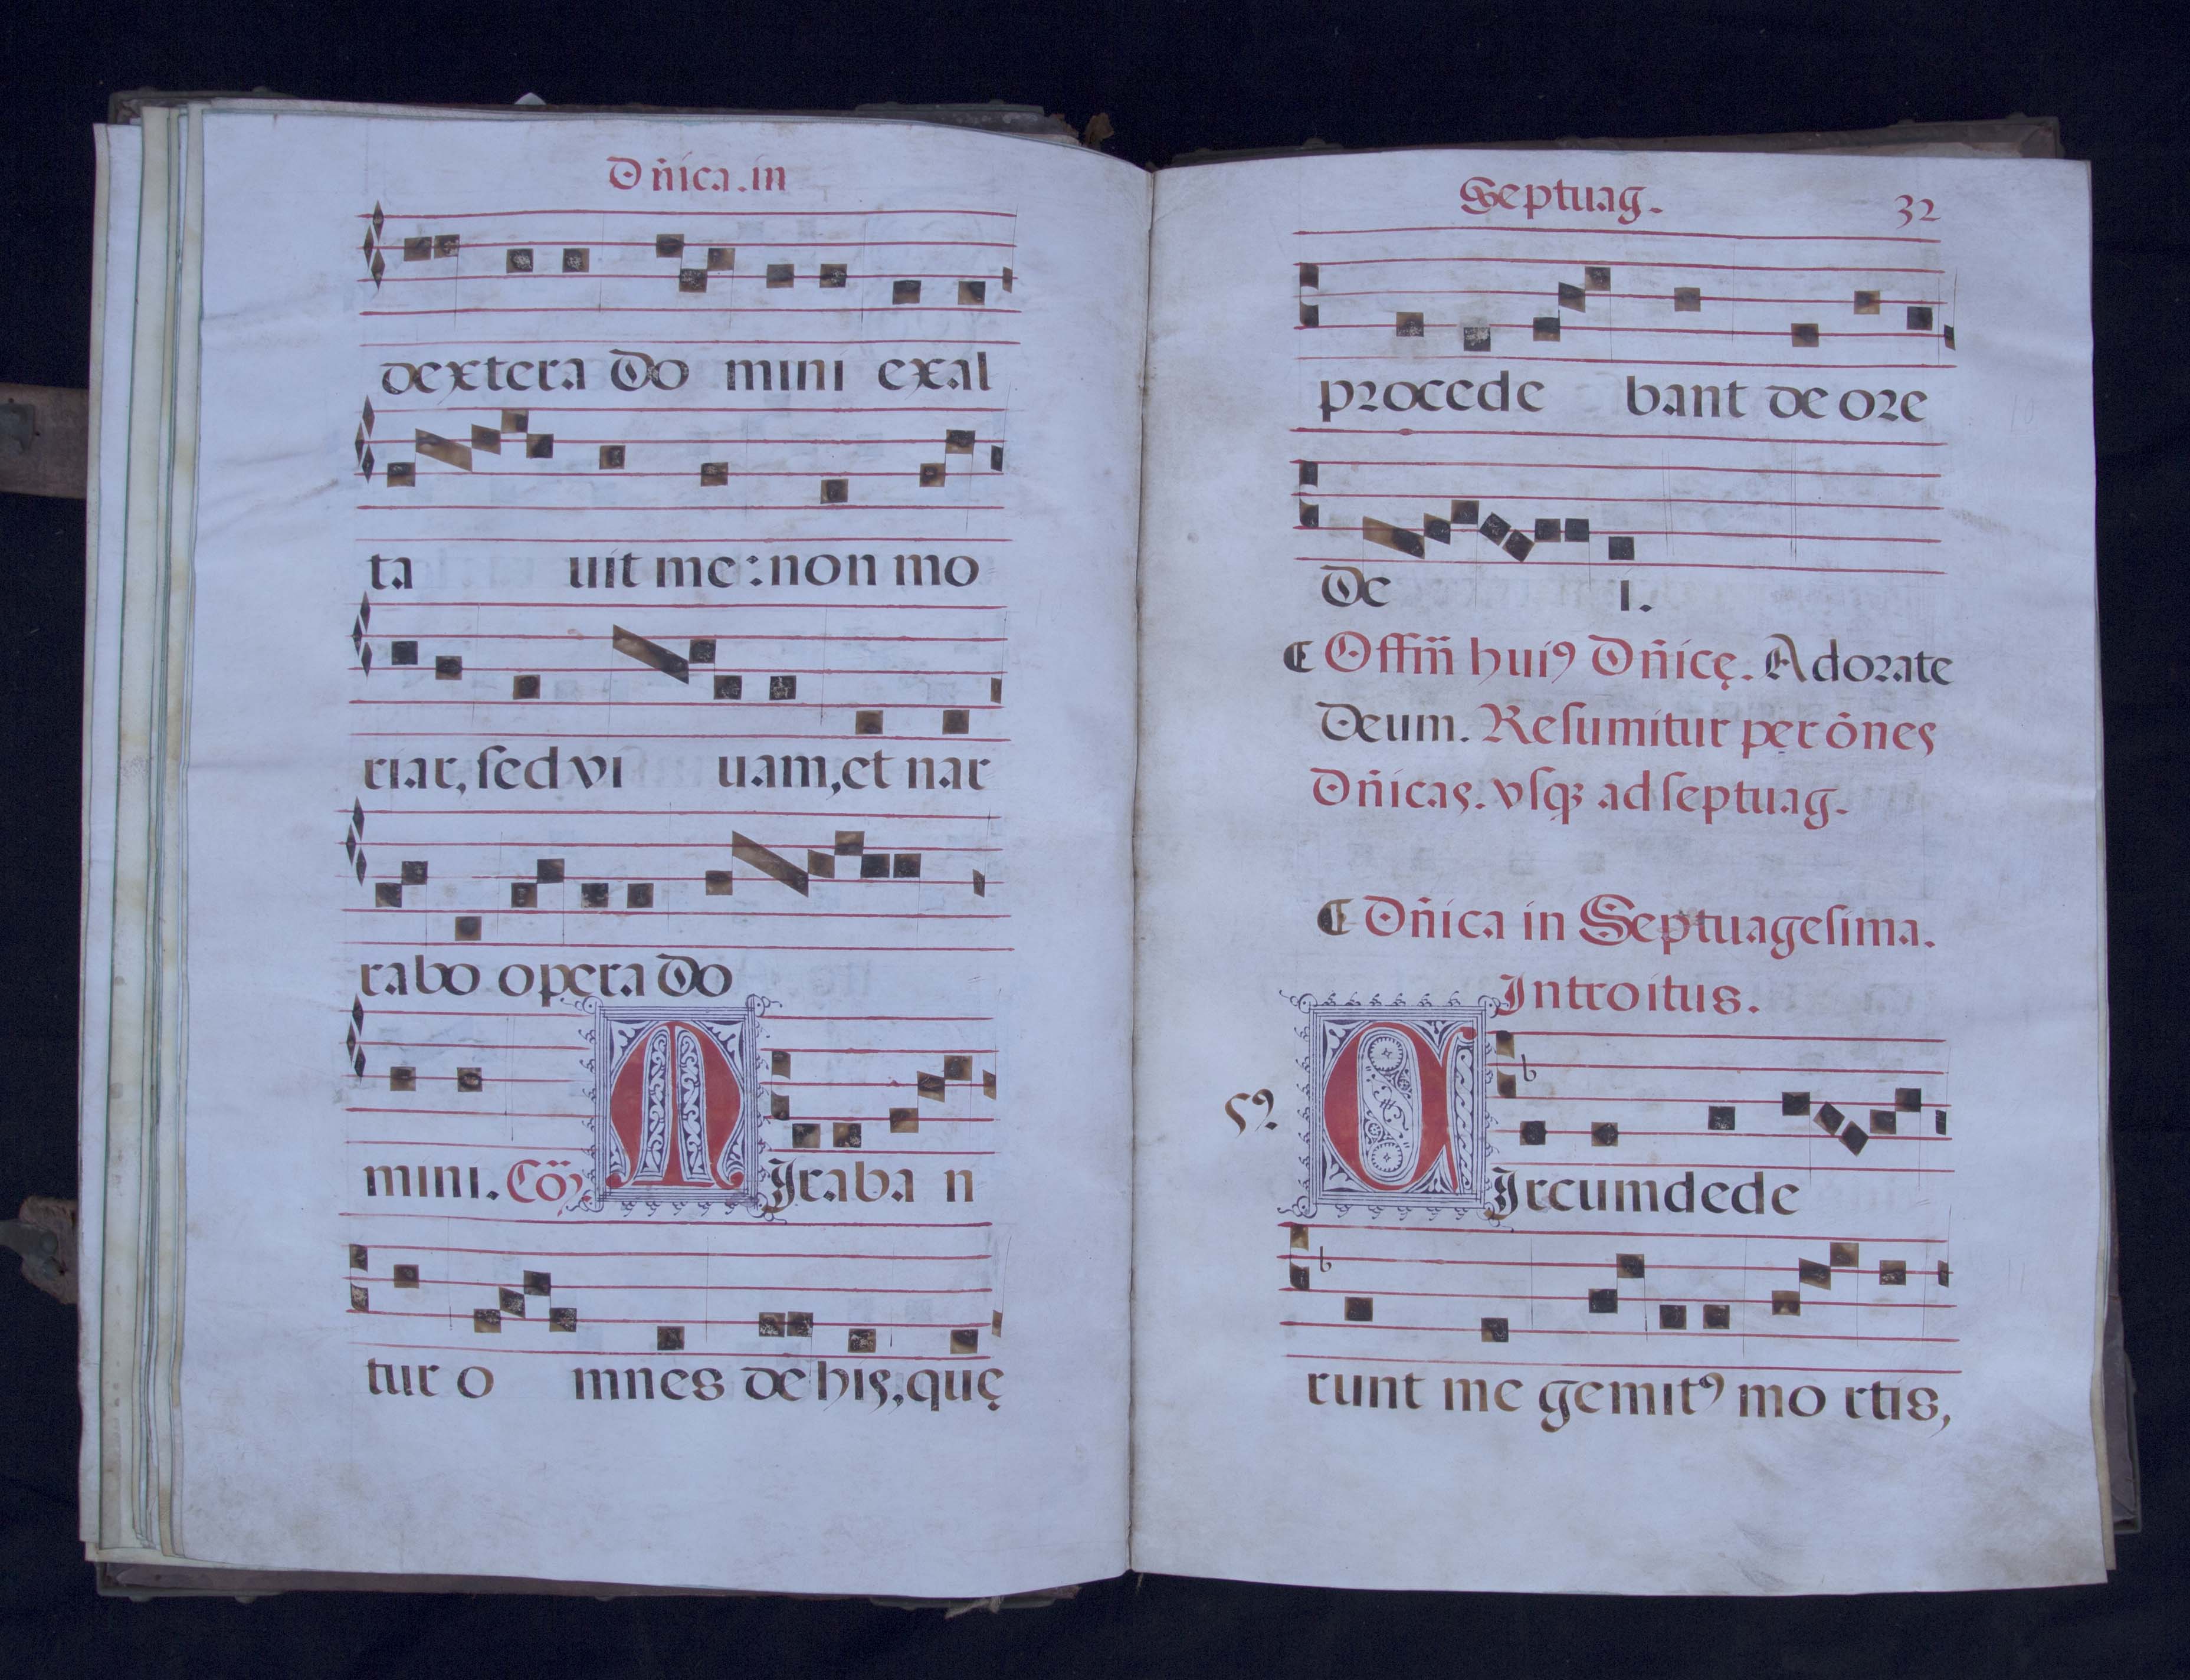 Dñica.in
dextera Do mini exal
ta uit me: non mo
riar, ſed vi uam, et nar
rabo opera Do
mini. Cõ͂. MIraba n
tur o mnes de his, quę
Septuag. 32
procede bant de ore
De i.
Offm̃ huiꝰ Dñicę. Adorate
Deum. Reſumitur per õnes
Dñicas. vſqꝫ ad ſeptuag.
Dñica in Septuageſima.
Introitus.
CIrcumdede
runt me gemitꝰ mo rtis,